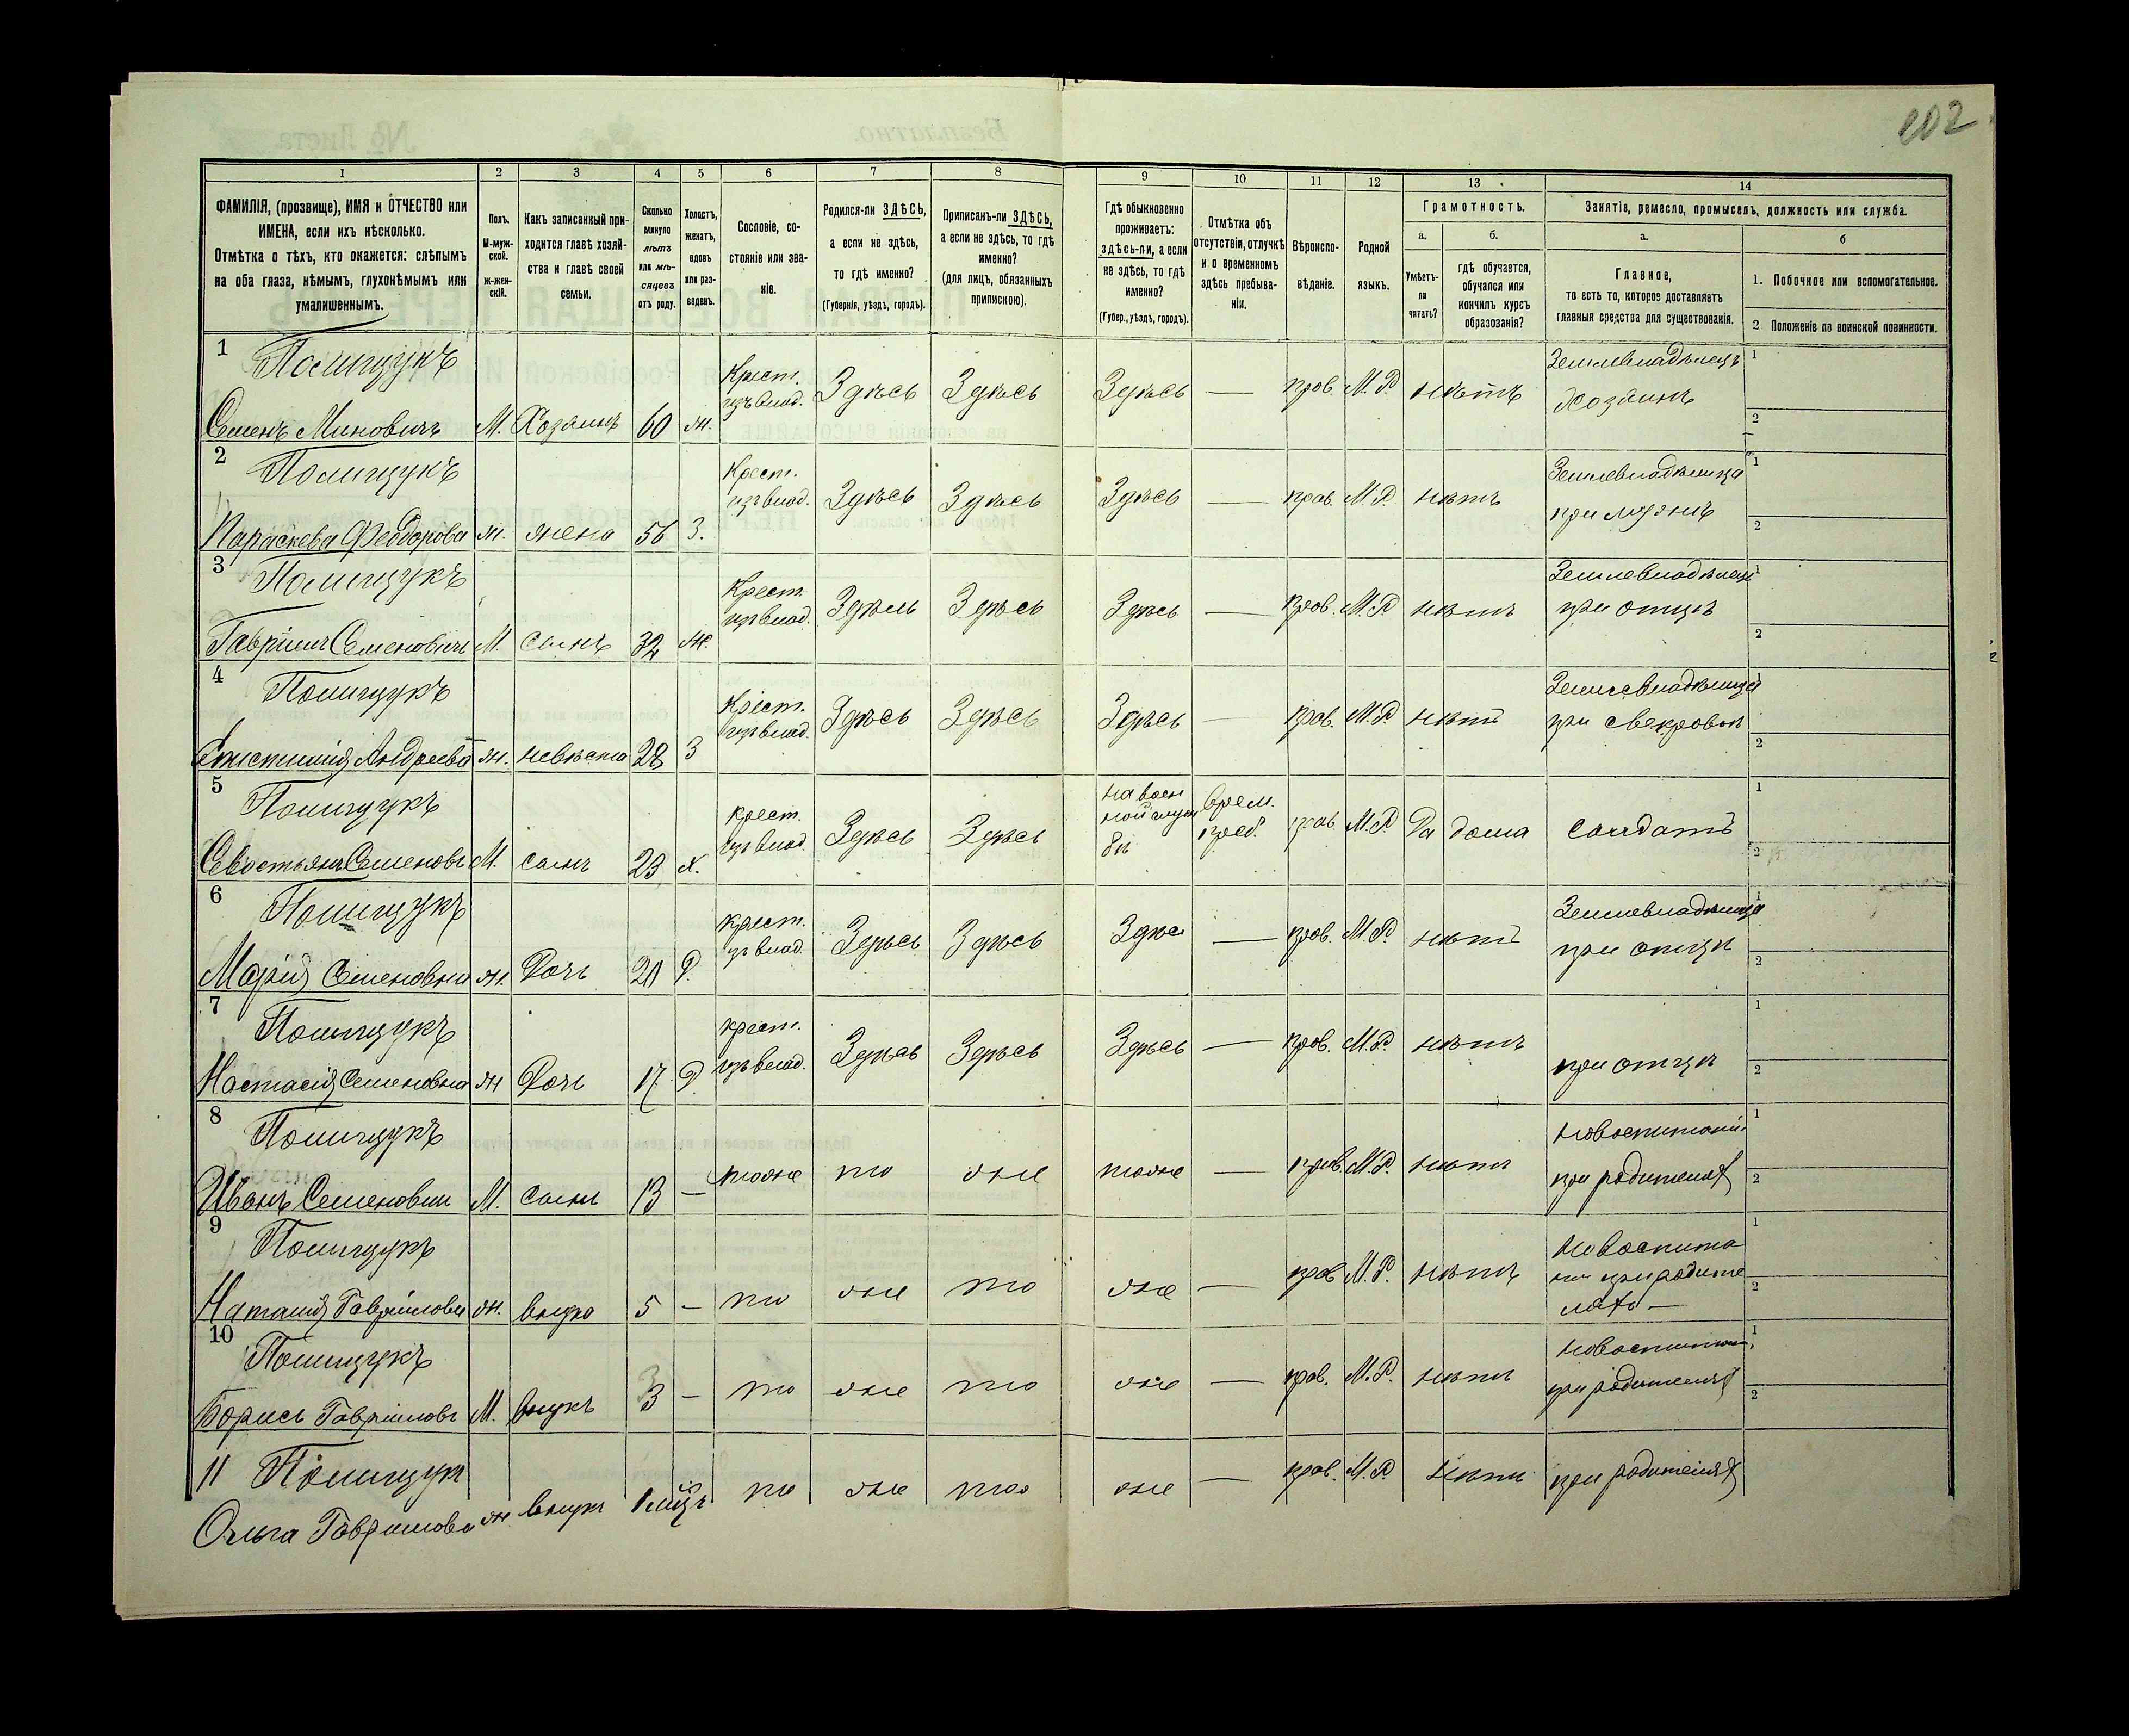 102
1 2 3 4 5 6 7 8 9 10 11 12 13 14
ФАМИЛІЯ, (прозвище), ИМЯ и ОТЧЕСТВО или ИМЕНА, если ихъ нѣсколько.
Отмѣтка о тѣхъ, кто окажется: слѣпымъ на оба глаза, нѣмымъ, глухонѣмымъ или умалишеннымъ.
Полъ. М-мужской. Ж-женскій.
Какъ записанный приходится главѣ хозяйства и главѣ своей семьи.
Сколько минуло лѣтъ или мѣсяцевъ отъ роду.
Холостъ, женатъ, вдовъ или разведенъ.
Сословіе, состояніе или званіе.
Родился-ли ЗДѢСЬ, а если не здѣсь, то гдѣ именно?
(Губернія, уѣздъ, городъ).
Приписанъ-ли ЗДѢСЬ, а если не здѣсь, то гдѣ именно?
(для лицъ, обязанныхъ припискою).
Гдѣ обыкновенно проживаетъ: здѣсь-ли, а если не здѣсь, то гдѣ именно?
(Губер., уѣздъ, городъ).
Отмѣтка объ отсутствіи, отлучкѣ и о временномъ здѣсь пребываніи.
Вѣроисповѣданіе.
Родной языкъ.
Грамотность.
а. Умѣетъ-ли читать?
б. гдѣ обучается, обучался или кончилъ курсъ образованія?
Занятіе, ремесло, промыселъ, должность или служба.
а. Главное, то есть то, которое доставляетъ главныя средства для существованія.
б
1. Побочное или вспомогательное.
2. Положеніе по воинской повинности.
1 Полищукъ
Семенъ Миновичъ М. Хозяинъ 60 ж. Крест. изъ влад. Здѣсь Здѣсь Здѣсь — прав. М.Р. нѣтъ Землевладѣлецъ хозяинъ 1 2
2 Полищукъ
Параскева Феодорова ж. жена 56 З. Крест. изъ влад. Здѣсь Здѣсь Здѣсь — прав. М.Р. нѣтъ Землевладѣлица при мужѣ 1 2
3 Полищукъ
Гавріилъ Семеновичъ М. сынъ 32 ж. Крест. изъ влад. Здѣсь Здѣсь Здѣсь — прав. М.Р. нѣтъ Землевладѣлец при отцѣ 1 2
4 Полищукъ
Андреева ж. невѣста 28 З Крест. изъ влад. Здѣсь Здѣсь Здѣсь — прав. М.Р. нѣтъ Землевладѣлица при свекровѣ 1 2
5 Полищукъ
Севостьянъ Семеновъ М. сынъ 23 х. крест. изъ влад. Здѣсь Здѣсь на военной службѣ врем. преб. прав. М.Р. Да дома солдатъ 1 2
6 Полищукъ
Марія Семеновна ж. Дочь 20 Д. крест. изъ влад. Здѣсь Здѣсь Здѣс — прав. М.Р. нѣтъ Землевладѣлица при отцѣ 1 2
7 Полищукъ
Настасія Семеновна ж Дочь 17 Д. крест. изъ влад. Здѣсь Здѣсь Здѣсь — прав. М.Р. нѣтъ при отцѣ 1 2
8 Полищукъ
Иванъ Семенович М. сынъ 13 — тоже то же тоже — прав. М.Р. нѣтъ на воспитаніи при родителях 1 2
9 Полищукъ
Наталія Гавріилова ж. внука 5 — то же то же — прав. М.Р. нѣтъ на воспита нiи при родите ляхъ — 1 2
10 Полищукъ
Борисъ Гавріиловъ М. внукъ 3 — то же то же — прав. М.Р. нѣтъ на воспитан. при родителях 1 2
11 Полищук
Ольга Гаврилова ж внук 1 мцъ то же тоо же — прав. М.Р. нѣтъ при родителях